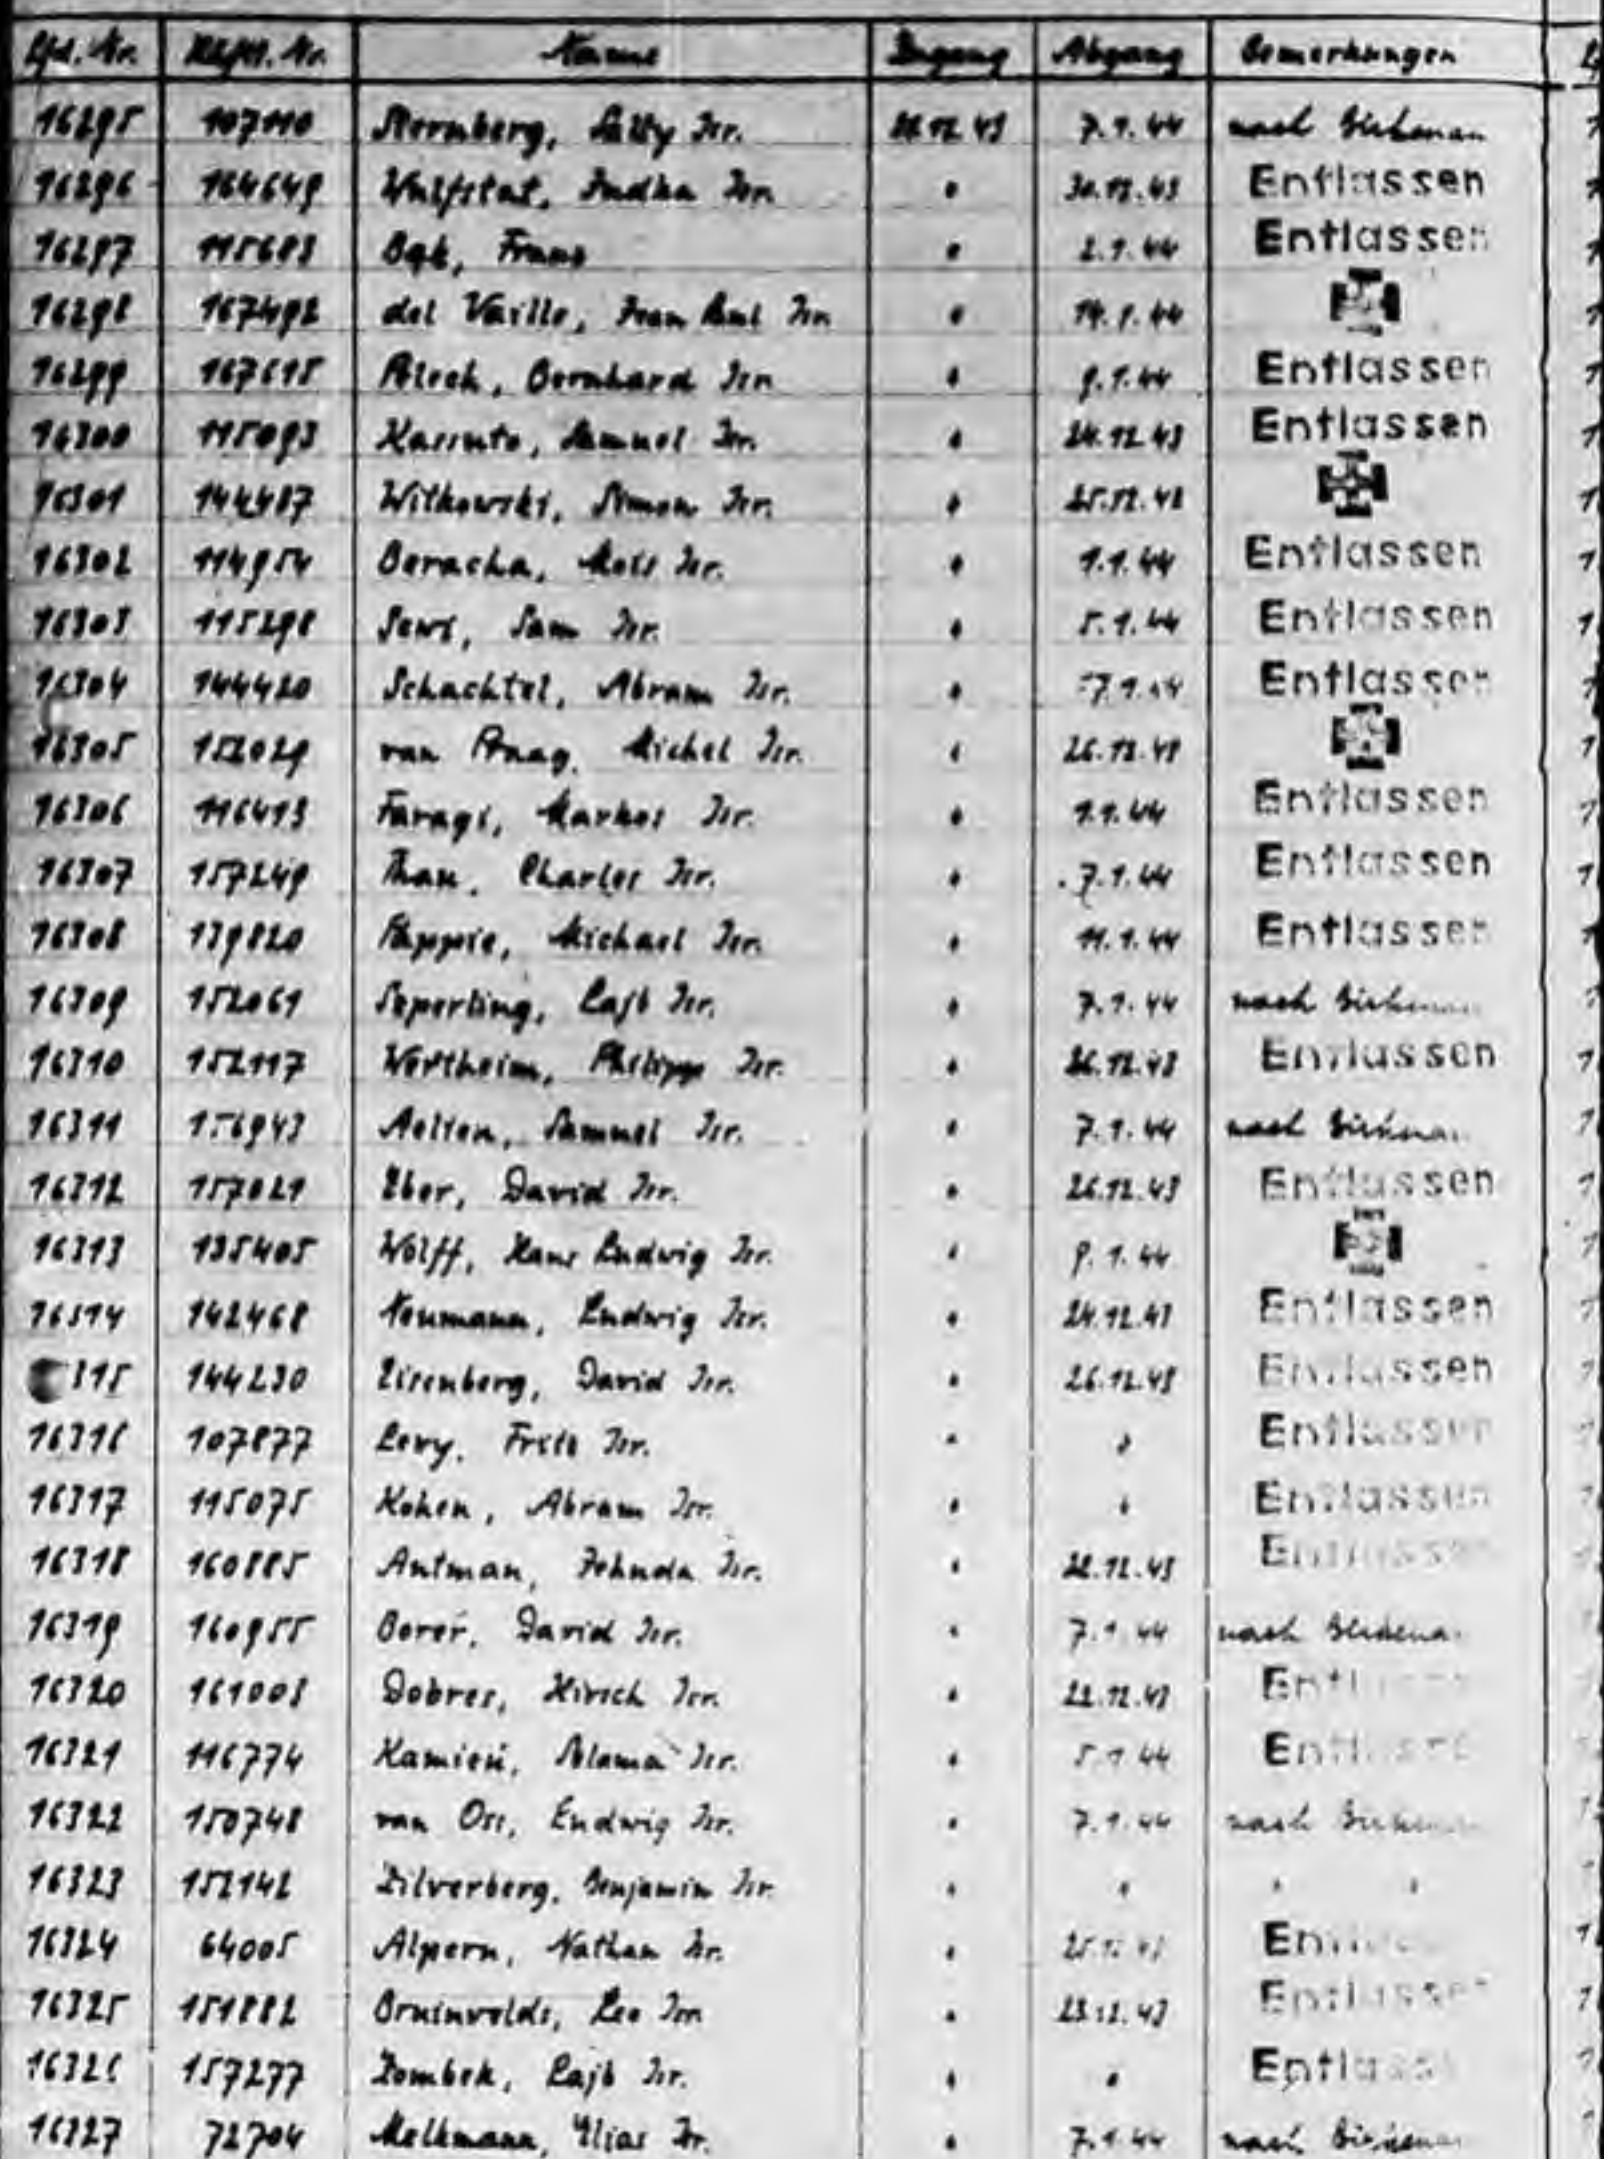 Lfd. Nr. Häftl. Nr. Name Zugang Abgang Bemerkungen
16295 107110 Sternberg, Sally Isr. 22.12.43 7.1.44 nach Birkenau
16296 164649 Isr. " 30.12.43 Entlassen
16297 115683 " 2.1.44 Entlassen
16298 167492 del Vaille, Isr. " 14.1.44
16299 167615 Bernhard Isr. " 9.1.44 Entlassen
16300 115093 Kassuto, Samuel Isr. " 24.12.43 Entlassen
16301 144487 Witkowski, Simon Isr. " 25.12.43
16302 114954 Beracha, Mois Isr. " 1.1.44 Entlassen
16303 115298 Isr. " 5.1.44 Entlassen
16304 144420 Schachtel, Abram Isr. " 7.1.44 Entlassen
16305 152029 van Praag, Michel Isr. " 26.12.43
16306 116413 Faragi, Markos Isr. " 1.1.44 Entlassen
16307 157249 Charles Isr. " 7.1.44 Entlassen
16308 139820 Michael Isr. " 11.1.44 Entlassen
16309 152061 Seperling, Lajb Isr. " 7.1.44 nach Birkenau
16310 152117 Wertheim, Philipp Isr. " 26.12.43 Entlassen
16311 156943 Aelion, Samuel Isr. " 7.1.44 nach Birkenau
16312 157021 Eber, David Isr. " 26.12.43 Entlassen
16313 135405 Wolff, Hans Ludwig Isr. " 9.1.44
16314 142468 Neumann, Ludwig Isr. " 24.12.43 Entlassen
315 144230 Eisenberg, David Isr. " 26.12.43 Entlassen
16316 107877 Levy, Fritz Isr. " " Entlassen
16317 115075 Kohen, Abram Isr. " " Entlassen
16318 160885 Antman, Jehuda Isr. " 28.12.43 Entlassen
16319 160955 Borer, David Isr. " 7.1.44 nach Birkenau
16320 161003 Dobres, Hirsch Isr. " 22.12.43 Entlassen
16321 116774 Kamień, Szlama Isr. " 5.1.44 Entlassen
16322 150748 van Oss, Ludwig Isr. " 7.1.44 nach Birkenau
16323 152142 Zilverberg, Benjamin Isr. " " " "
16324 64005 Alpern, Nathan Isr. " 25.12.43 Entlassen
16325 151882 Bruinvelds, Leo Isr. " 23.12.43 Entlassen
16326 157277 Zombek, Lajb Isr. " " Entlassen
16327 72704 Melkmann, Elias Isr. " 7.1.44 nach Birkenau